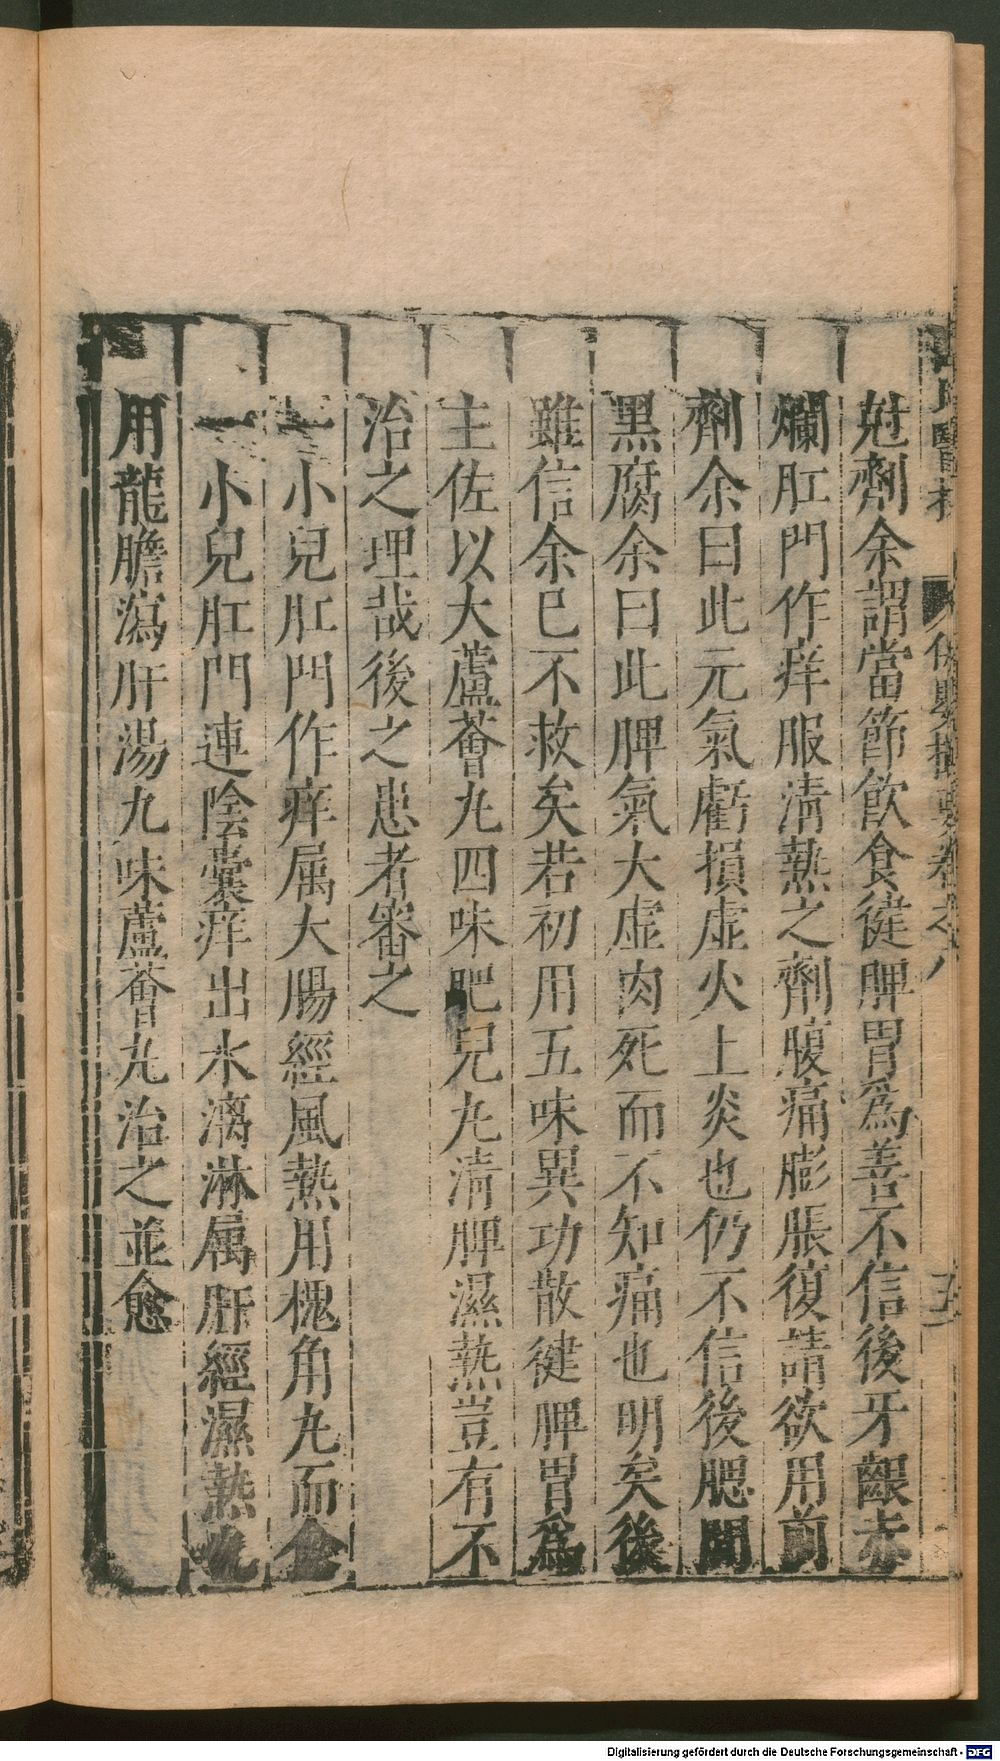 氏醫
保嬰撮要卷之八
尅劑余謂當節飲食健脾胃爲善不信後牙齦赤
爛肛門作痒服清熱之劑腹痛膨脹復請欲用前
劑余曰此元氣虧損虛火上炎也仍不信後腮間
黑腐余曰此脾氣大虛肉死而不知痛也明矣後
雖信余已不救矣若初用五味異功散健脾胃爲
主佐以大蘆薈九四味肥兒九清脾濕熱豈有不
治之理哉後之患者審之
一小兒肛門作痒属大腸經風熱用槐角九而愈
一小兒肛門連陰囊痒出水漓淋属肝經濕熱先
用龍膽瀉肝湯九味蘆薈九治之並愈
Digitalisierung gefördert durch die Deutsche Forschungsgemeinschaft - DFG